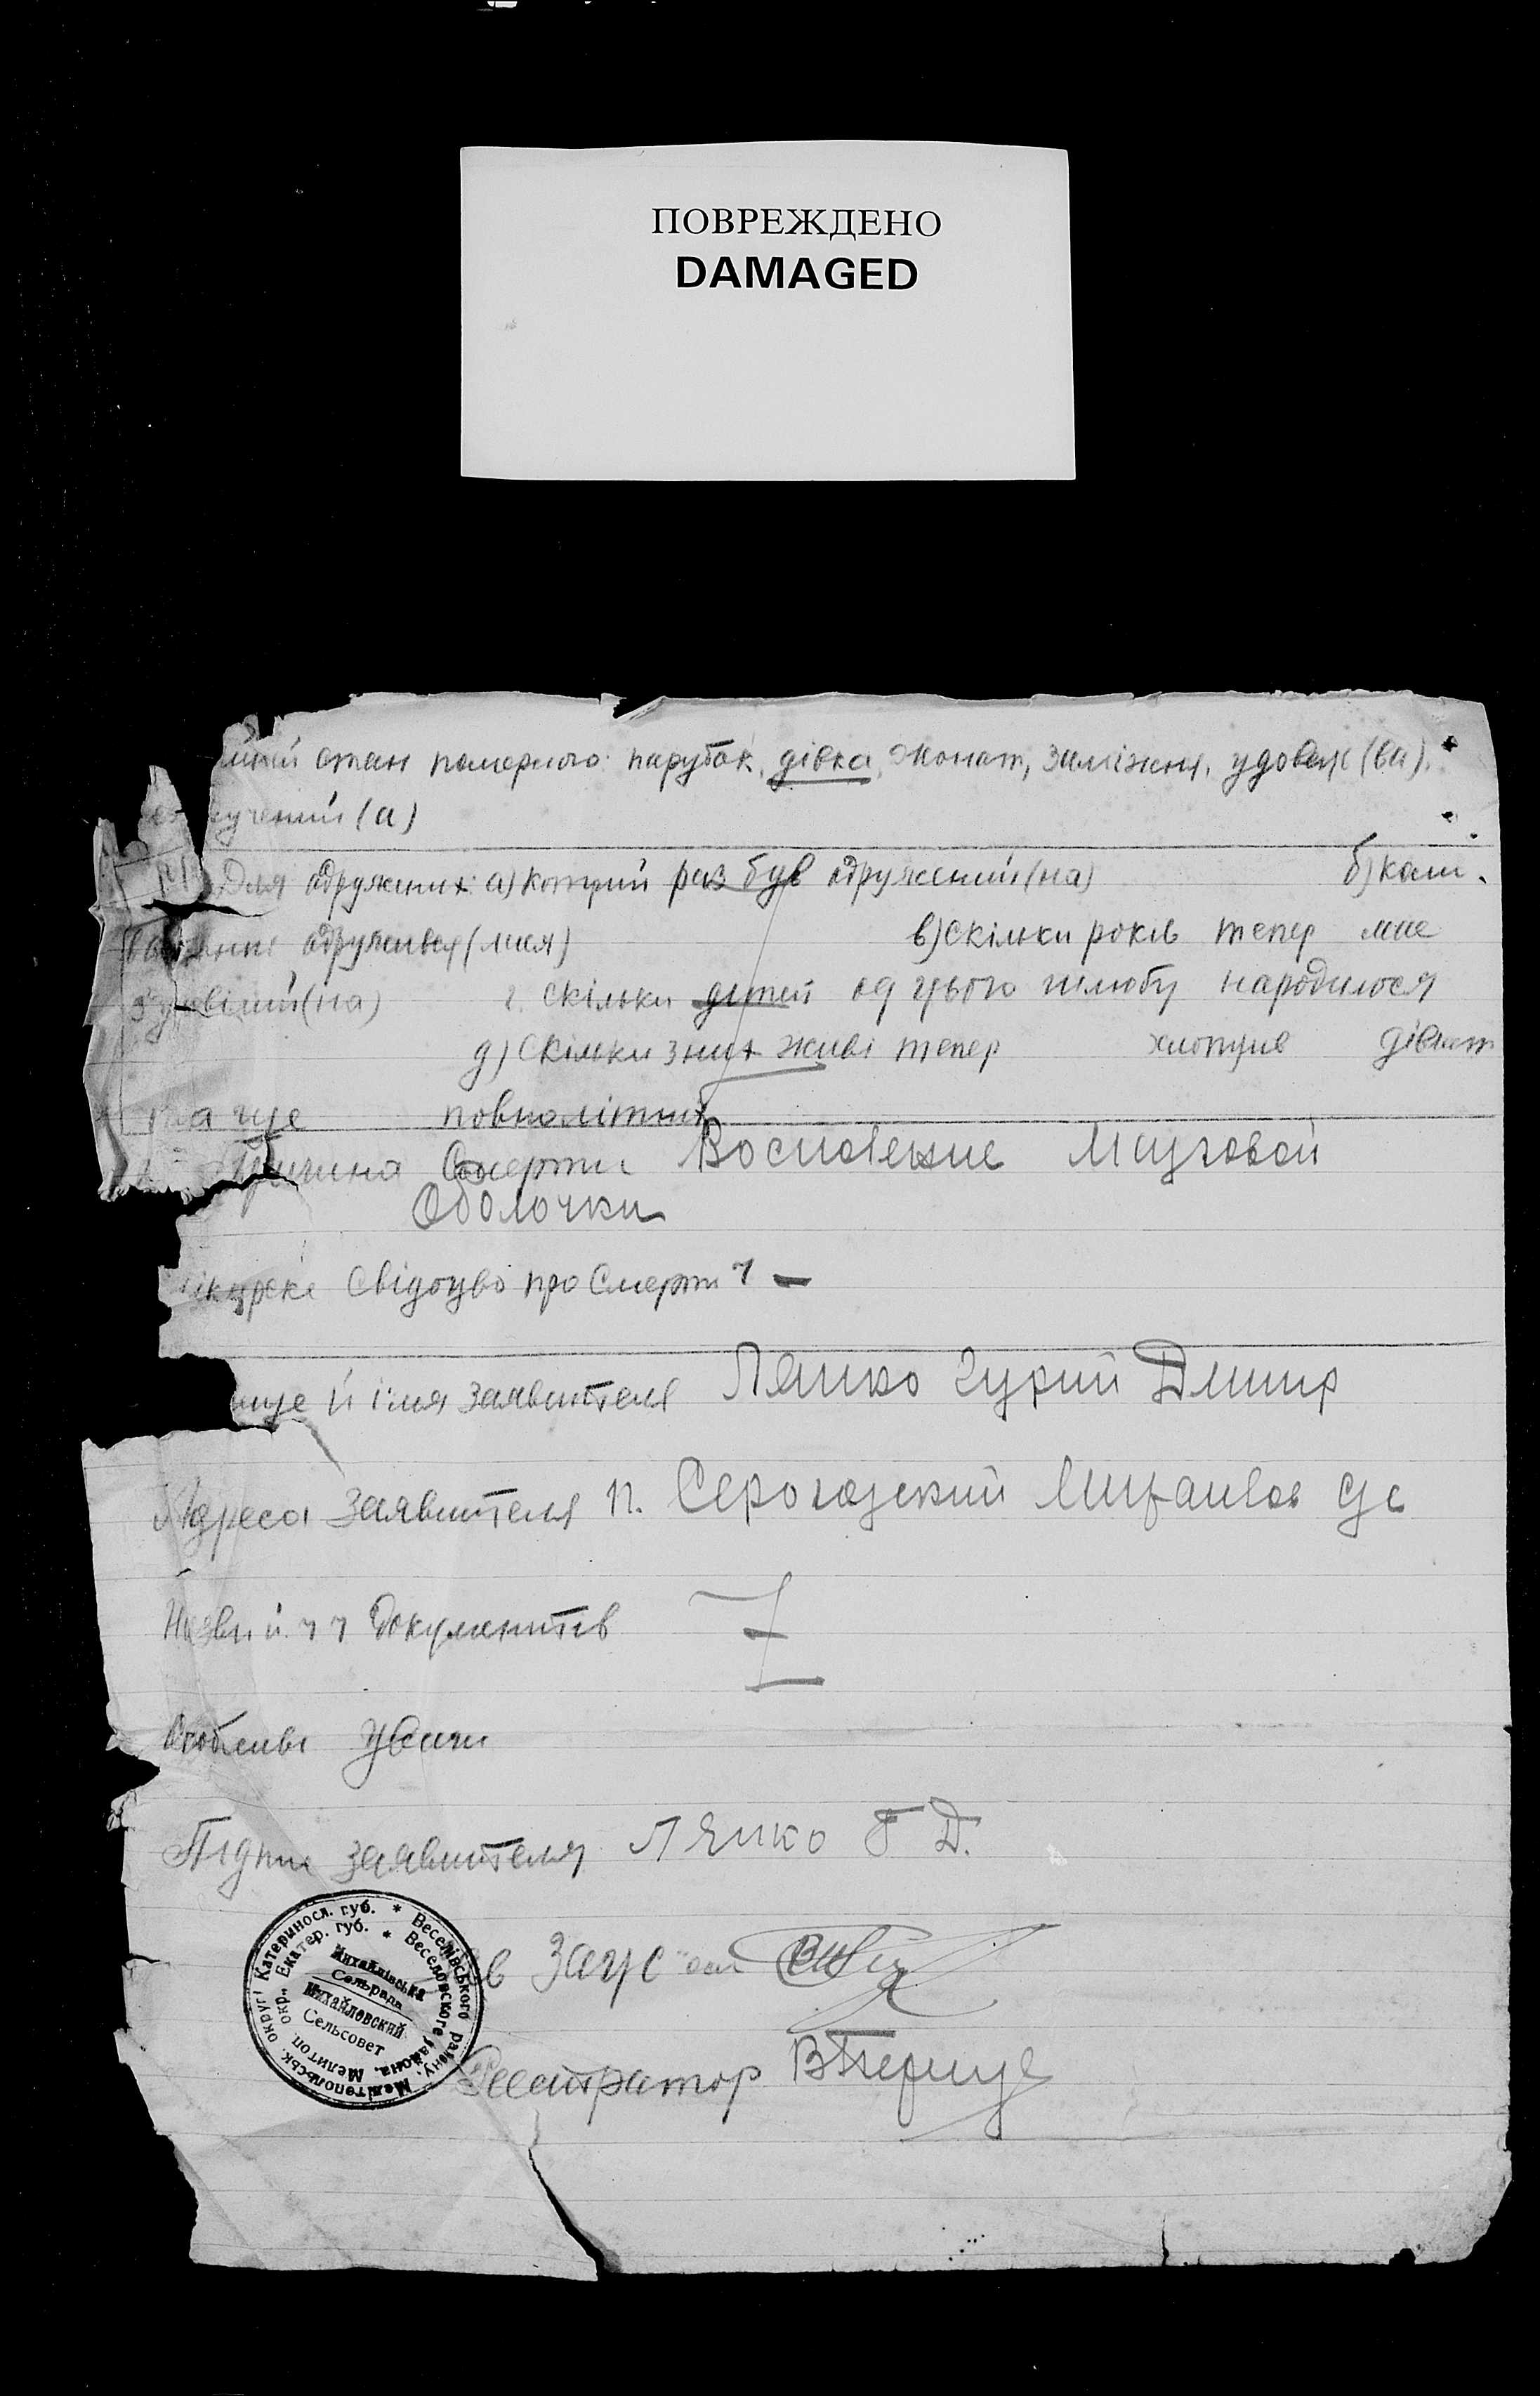 ПОВРЕЖДЕНО
DAMAGED
стан померлого: парубок, дівка, жонат, заміжня, удовец (ва),
учений (а)
Для одружених: а) котрий раз був одружений (на) б) коли
одружився (лися) в) скільки років тепер має
(на) г. скільки детей од цього шлюбу народилося
д) скільки з них живі тепер хлопців дівчат
ще повнолітних
Причина Смерти Воспаление Мозговой
Оболочки
Свідоцво про Смерть –
ище й імя заявителя Ляшко Гурий Дмитр
Адреса заявителя п. Серогозский Михайлов с/с
Назви й чч Документів –
Особливі уваги
Підпис заявителя Ляшко Г Д.
Зав Загс'ом
Реєстратор
Мелітопольськ. округі Катеринос. губ. * Веселівського району.
Мелитоп. окр., Екатер. губ. * Веселовского района,
Михайлівська
Сельрада
Михайловский
Сельсовет